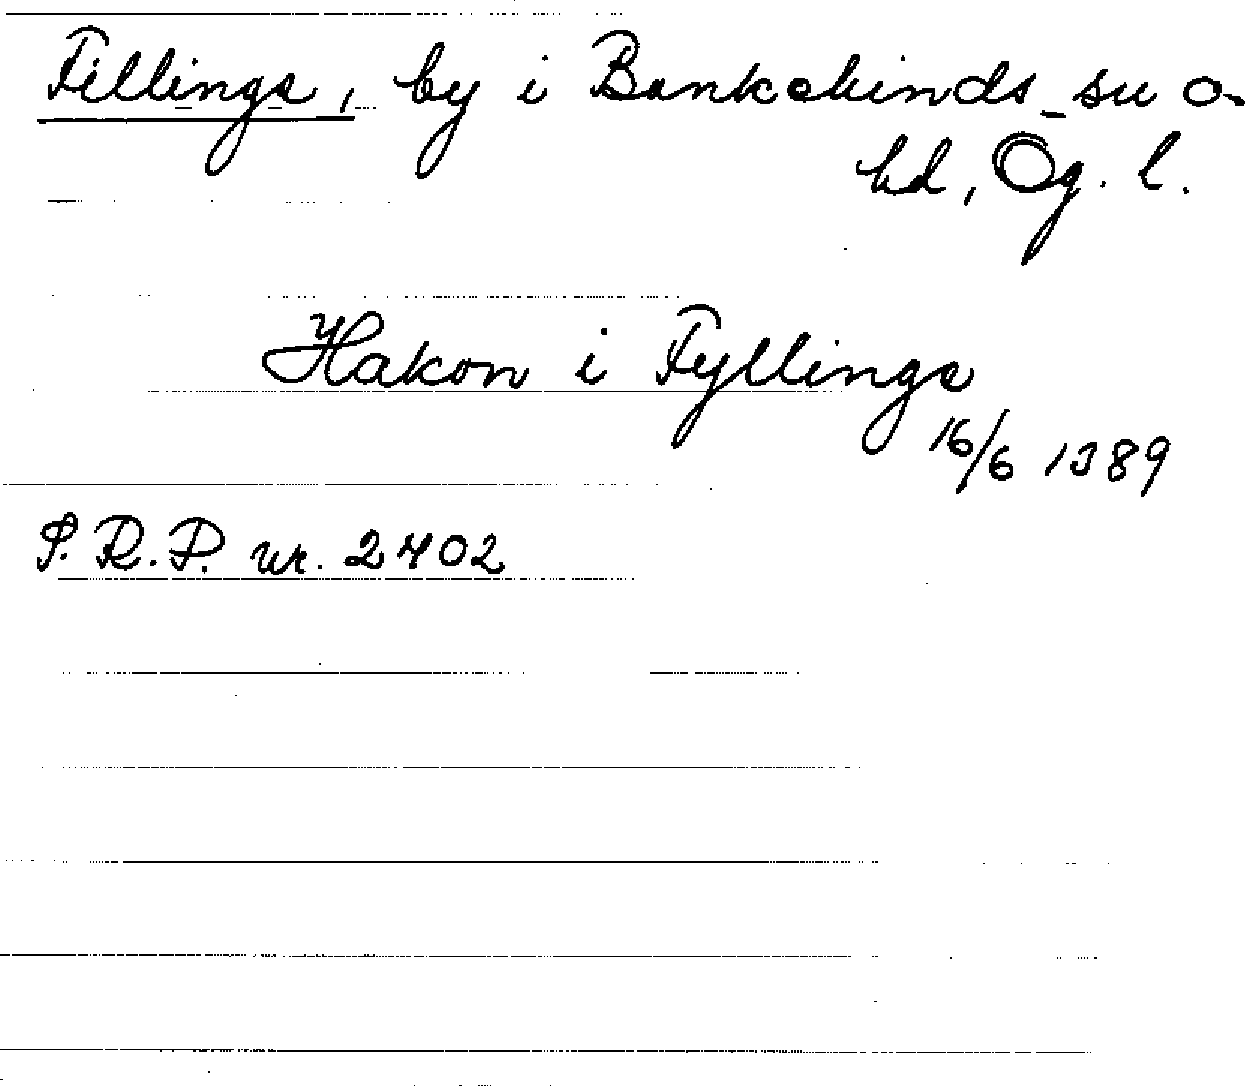 Fillinge, by i Bankekinds sn o.
hd, Ög. l.
Hakon i Fyllinge
16/6 1389
S. R. P. nr. 2402